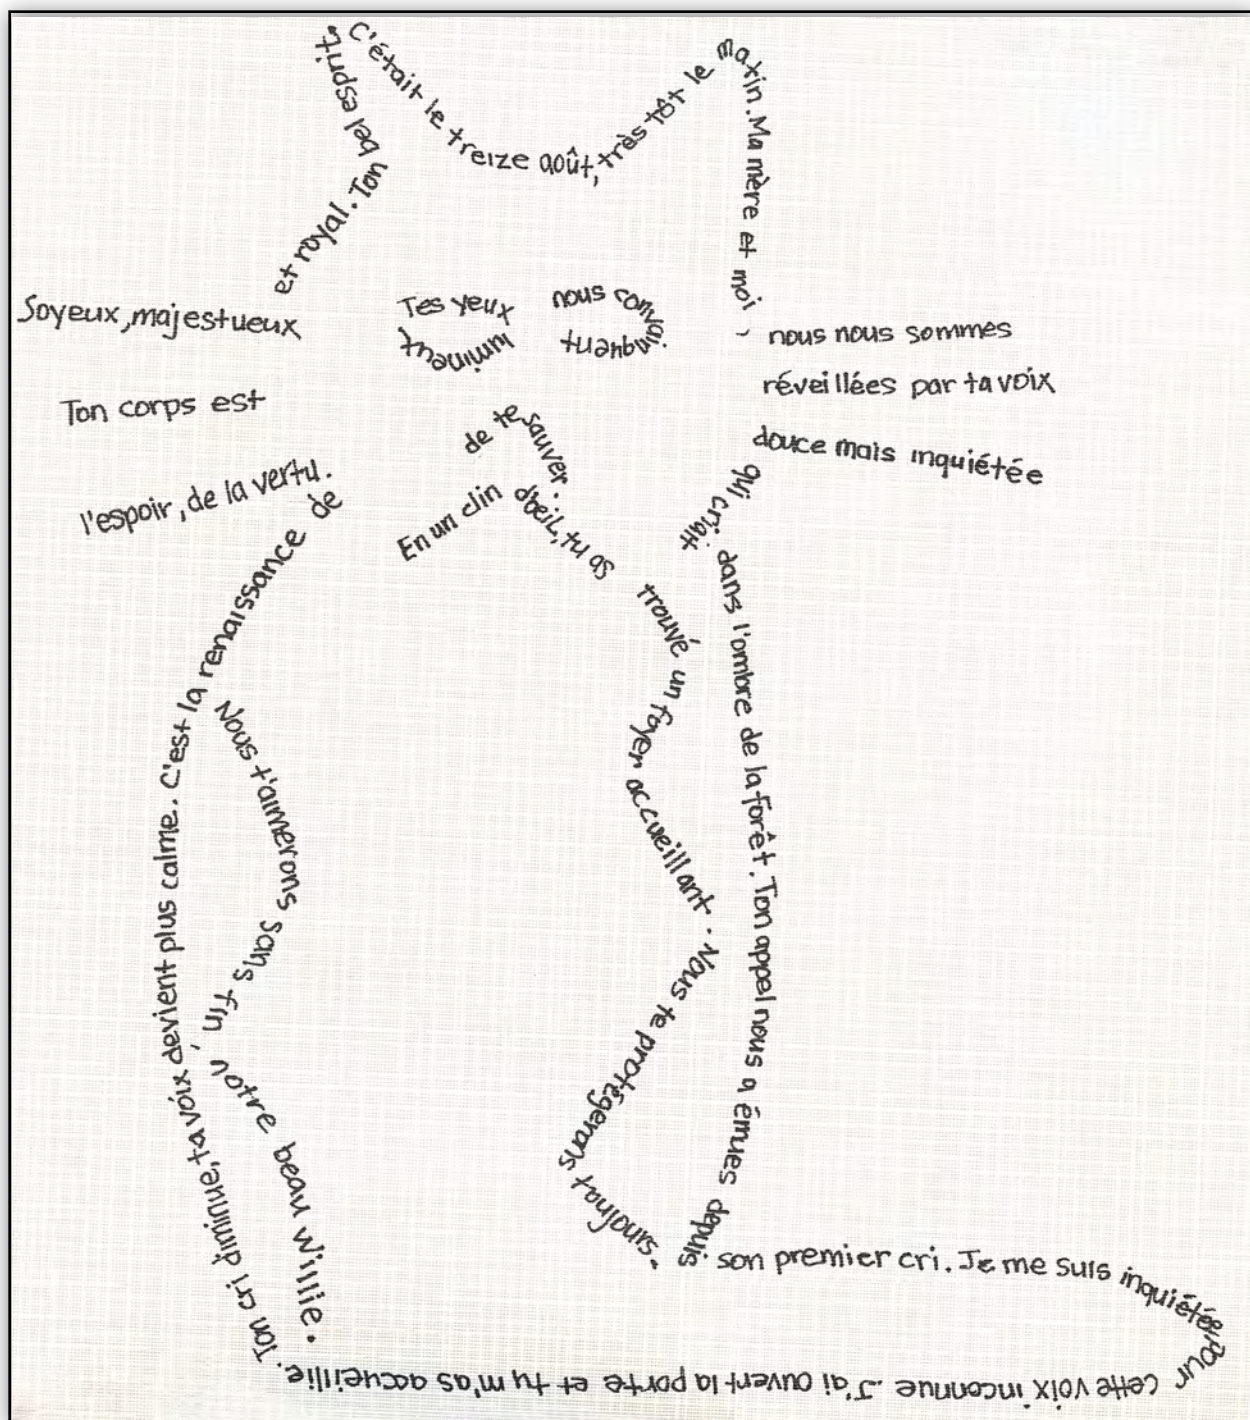 C'était le treize août, très tôt le matin. Ma mère et moi,
nous nous sommes
réveillées par ta voix
douce mais inquiétée
qui criait
dans l'ombre de la forêt. Ton appel nous a émues depuis
son premier cri. Je me suis inquiétée pour
cette voix inconnue. J'ai ouvert la porte et tu m'as accueillie.
Ton cri diminue, ta voix devient plus calme. C'est la renaissance de
l'espoir, de la vertu.
Ton corps est
Soyeux, majestueux
et royal. Ton bel esprit.
Tes yeux
lumineux
nous convainquent
de te sauver.
En un clin d'oeil, tu as
trouvé un foyer accueillant. Nous te protégerons toujours.
Nous t'aimerons sans fin,
notre beau Willie.